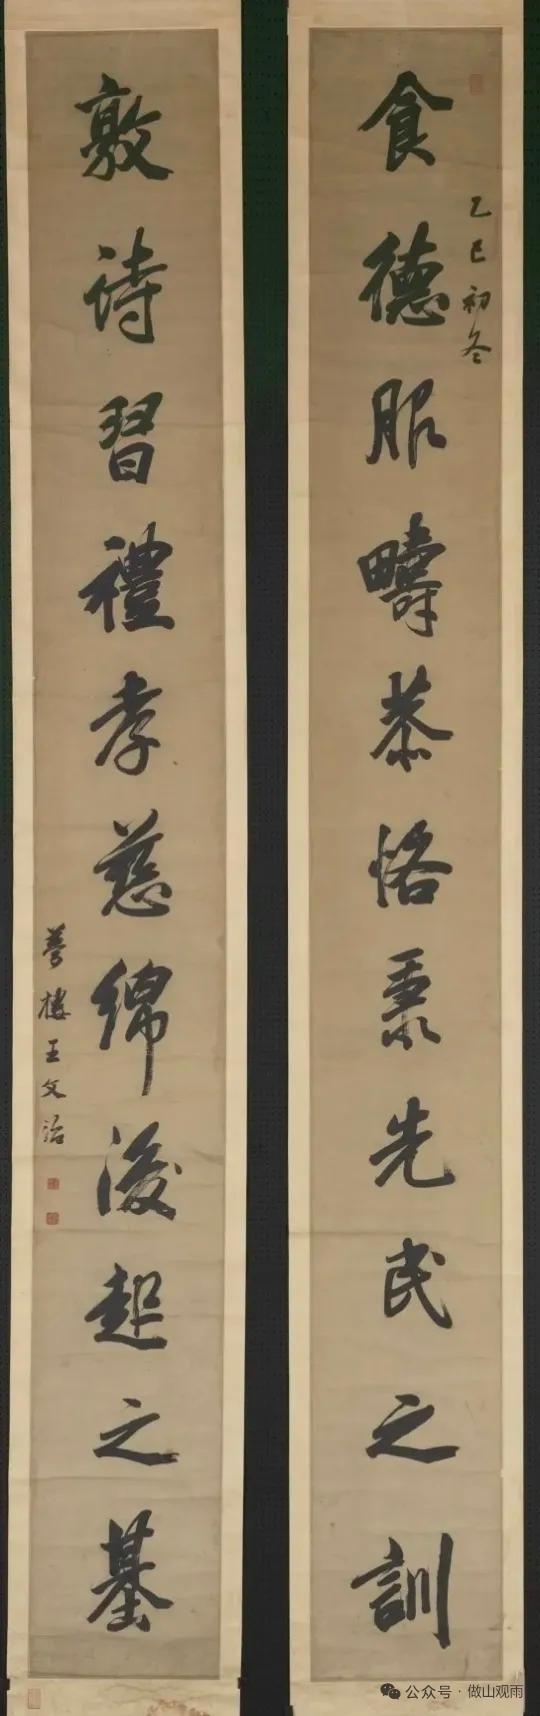 食德服疇恭恪秉先民之訓
乙巳初冬
敦诗習禮孝慈綿後起之基
夢樓王文治
公众号·做山观雨